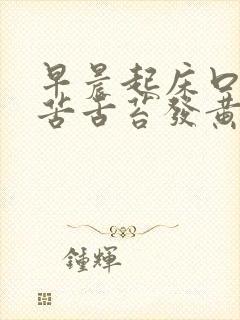 早晨起床口
苦舌苔發黃
鍾輝